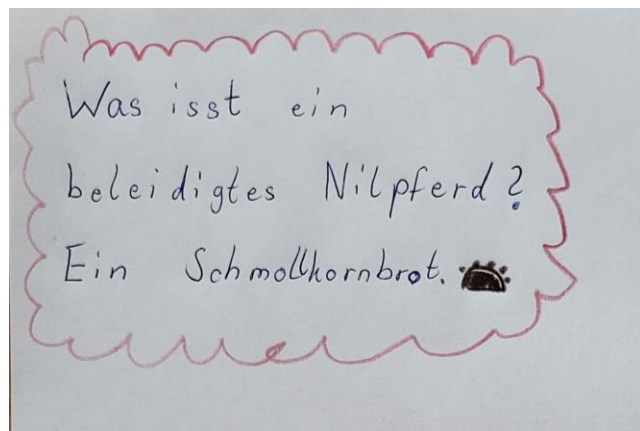 Was isst ein
beleidigtes Nilpferd?
Ein Schmollkornbrot.